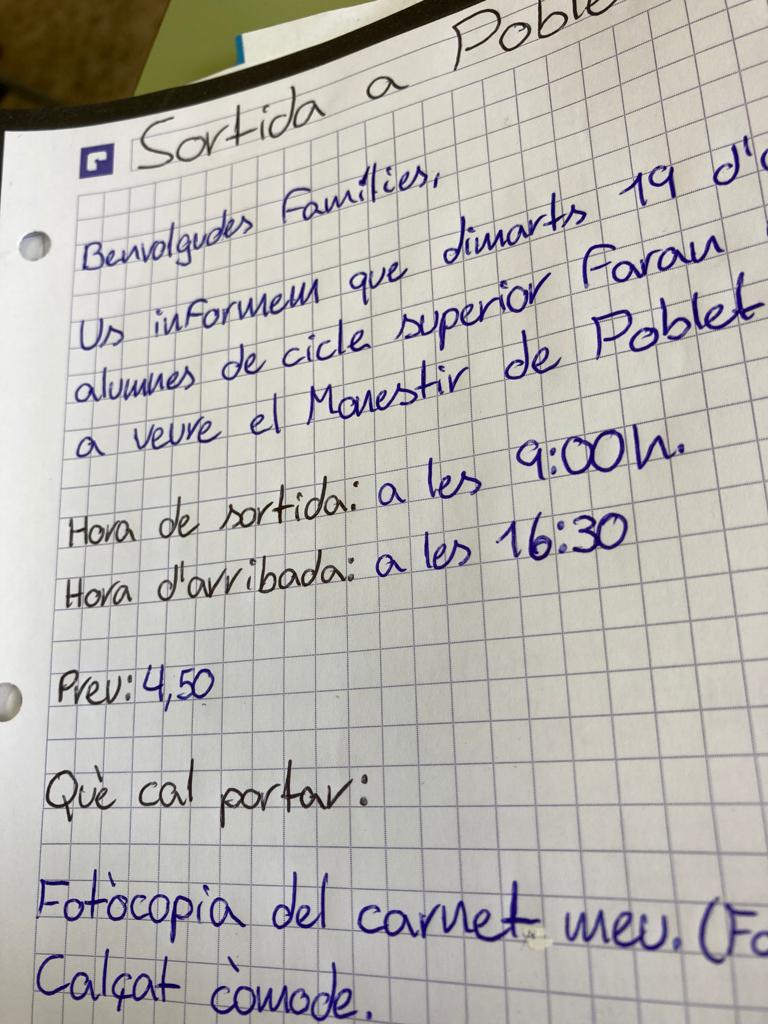 Sortida a
Benvolgudes Famílies,
Us informem que dimarts 19
alumnes de cicle superior Faran
a veure el Monestir de Poblet
Hora de sortida: a les 9:00h.
Hora d'arribada: a les 16:30
Preu: 4,50
Què cal portar:
Fotòcopia del carnet meu.
Calçat còmode.